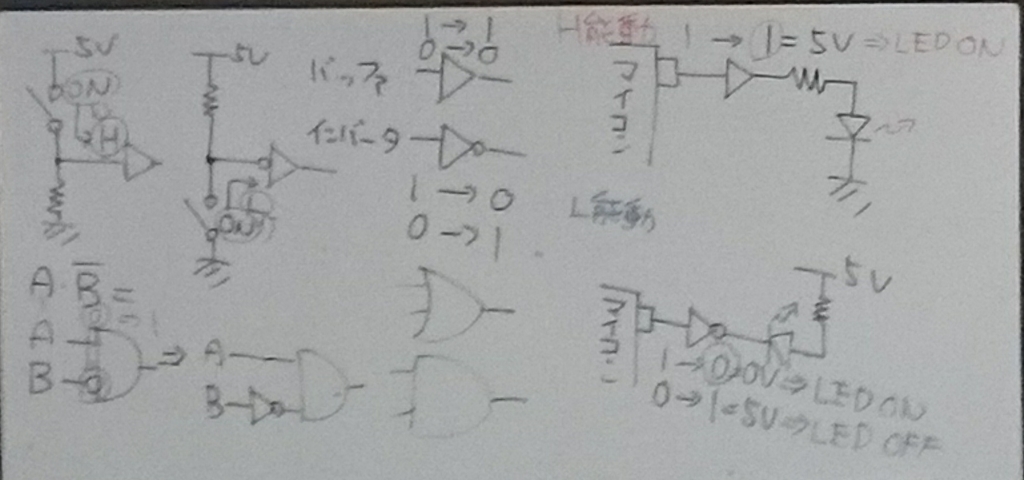 5V
ON
H
5V
ON
バッファ
1 → 1
0 → 0
インバータ
1 → 0
0 → 1
H能動
マイコン
1 → 1 = 5V ⇒ LED ON
L能動
マイコン
5V
1 → 0 = 0V ⇒ LED ON
0 → 1 = 5V ⇒ LED OFF
A・B̅ =
A
B
⇒
A
B